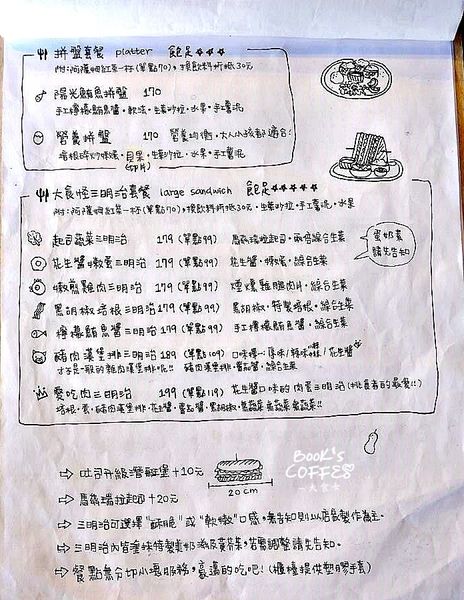 拼盤套餐 platter 飽足★★★★
附:阿薩姆紅茶一杯(單點70),換飲料折抵30元
陽光鮪魚拼盤 170
手工檸檬鮪魚醬・軟法・生菜沙拉・水果・手工薯泥
營養拼盤 170 營養均衡・大人小孩都適合!
培根碎炒嫩蛋・貝果・生菜沙拉・水果・手工薯泥
大食怪三明治套餐 large sandwich 飽足★★★★★
附:阿薩姆紅茶一杯(單點70),換飲料折抵30元・生菜沙拉・手工薯泥・水果
起司蔬菜三明治 179(單點99) 馬茲瑞拉起司・兩倍綜合生菜
花生醬嫩蛋三明治 179(單點99) 花生醬・嫩蛋・綜合生菜
嫩煎雞肉三明治 179(單點99) 煙燻雞腿肉片・綜合生菜
黑胡椒培根三明治 179(單點99) 黑胡椒・特製培根・綜合生菜
檸檬鮪魚醬三明治 179(單點99) 手工檸檬鮪魚醬・綜合生菜
豬肉漢堡排三明治 189(單點109) 口味樓:原味/辣味/花生醬
才不是一般的豬肉漢堡排呢!! 豬肉漢堡排・番茄醬・綜合生菜
愛吃肉三明治 199(單點119) 花生醬口味的肉蛋三明治(挑食者的最愛!!)
培根・蛋・豬肉漢堡排・花生醬・番茄醬・黑胡椒・無蔬菜無蔬菜無蔬菜!!
蛋奶素
請先告知
Book's
COFFEE
一大食怪
吐司升級潛艇堡+10元
20cm
馬茲瑞拉起司+20元
三明治可選擇"酥脆"或"軟嫩"口感,無告知則以店長製作為主。
三明治內皆塗抹特製美奶滋及黃芥末,若需調整請先告知。
餐點無分切小塊服務,豪邁的吃吧!(櫃檯提供塑膠手套)